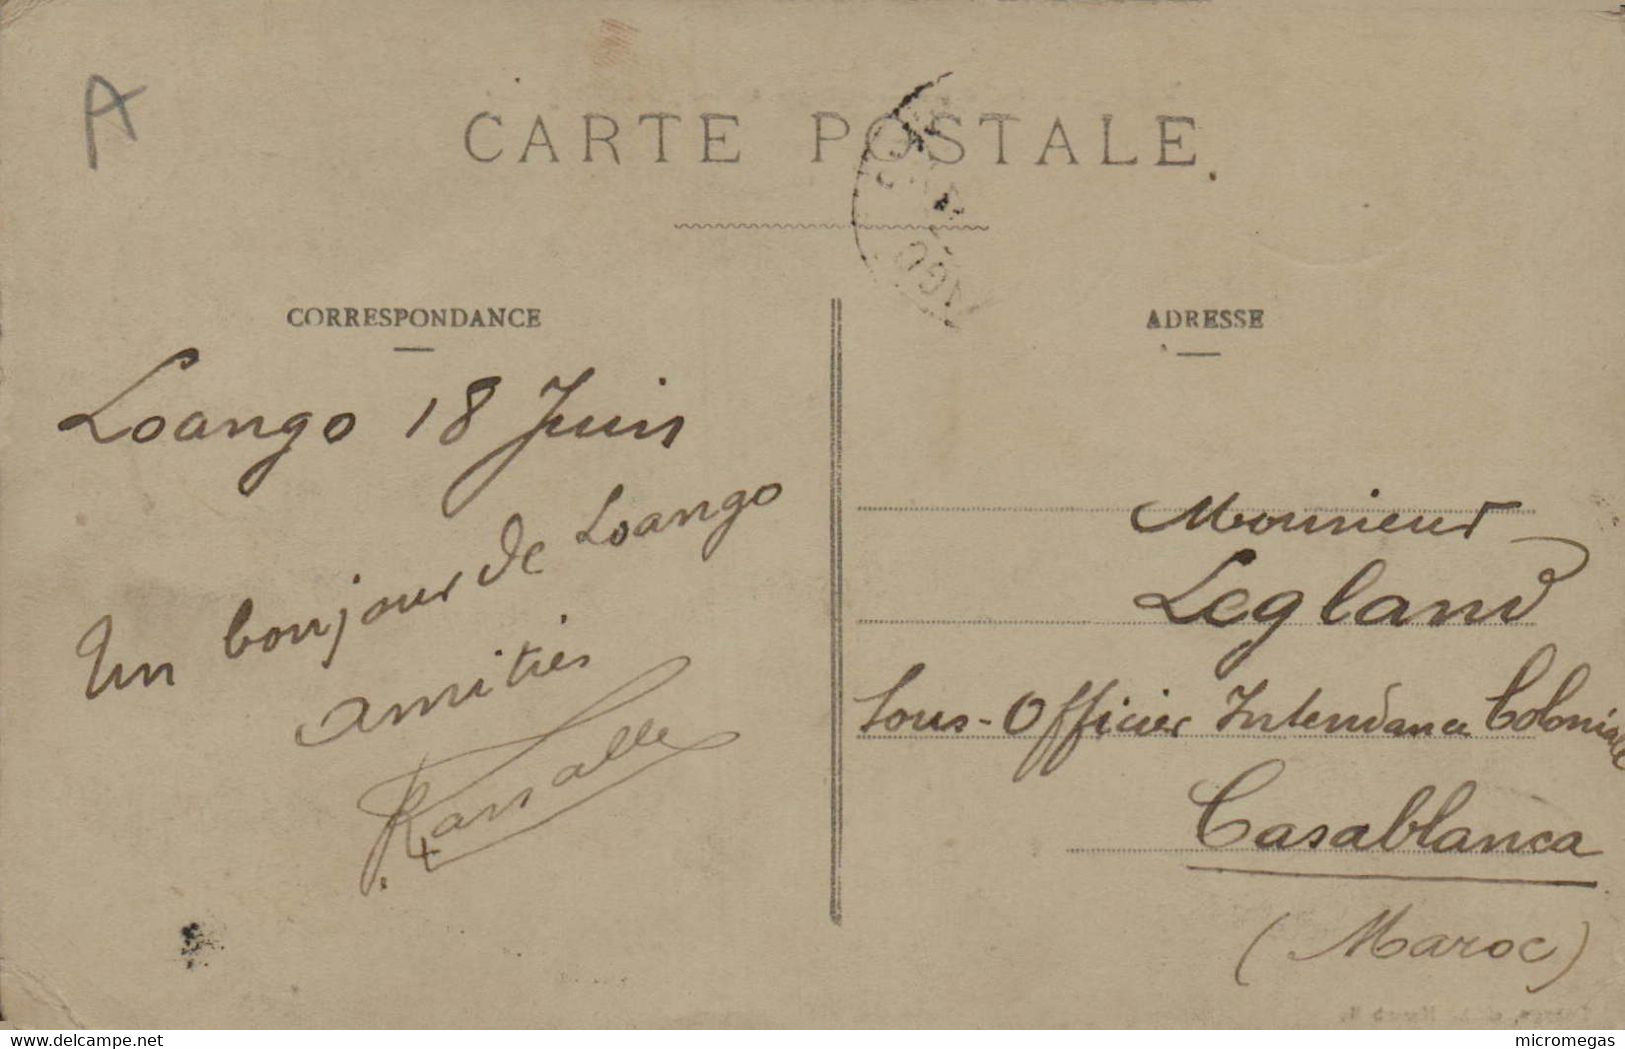 A
CARTE POSTALE
CORRESPONDANCE
Loango 18 Juin
Un bonjour de Loango
amitiés
ADRESSE
Monsieur
Legland
Sous-Officier Intendance Coloniale
Casablanca
(Maroc)
delcampe.net
micromegas